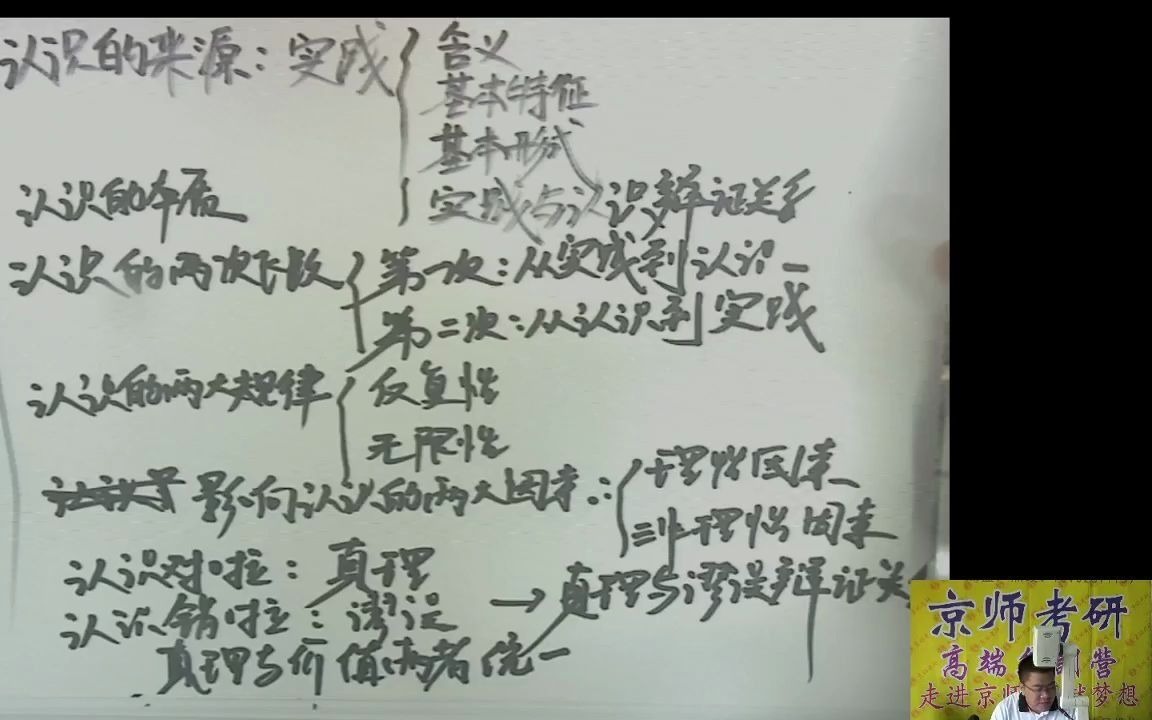 认识的来源：实践
含义
基本特征
基本形式
实践与认识辩证关系
认识的本质
认识的两次飞跃
第一次：从实践到认识
第二次：从认识到实践
认识的两大规律
反复性
无限性
影响认识的两大因素：
理性因素
非理性因素
认识对啦：真理
认识错啦：谬误
→真理与谬误辩证关
真理与价值两者统一
京师考研
高端 营
走进京师 梦想